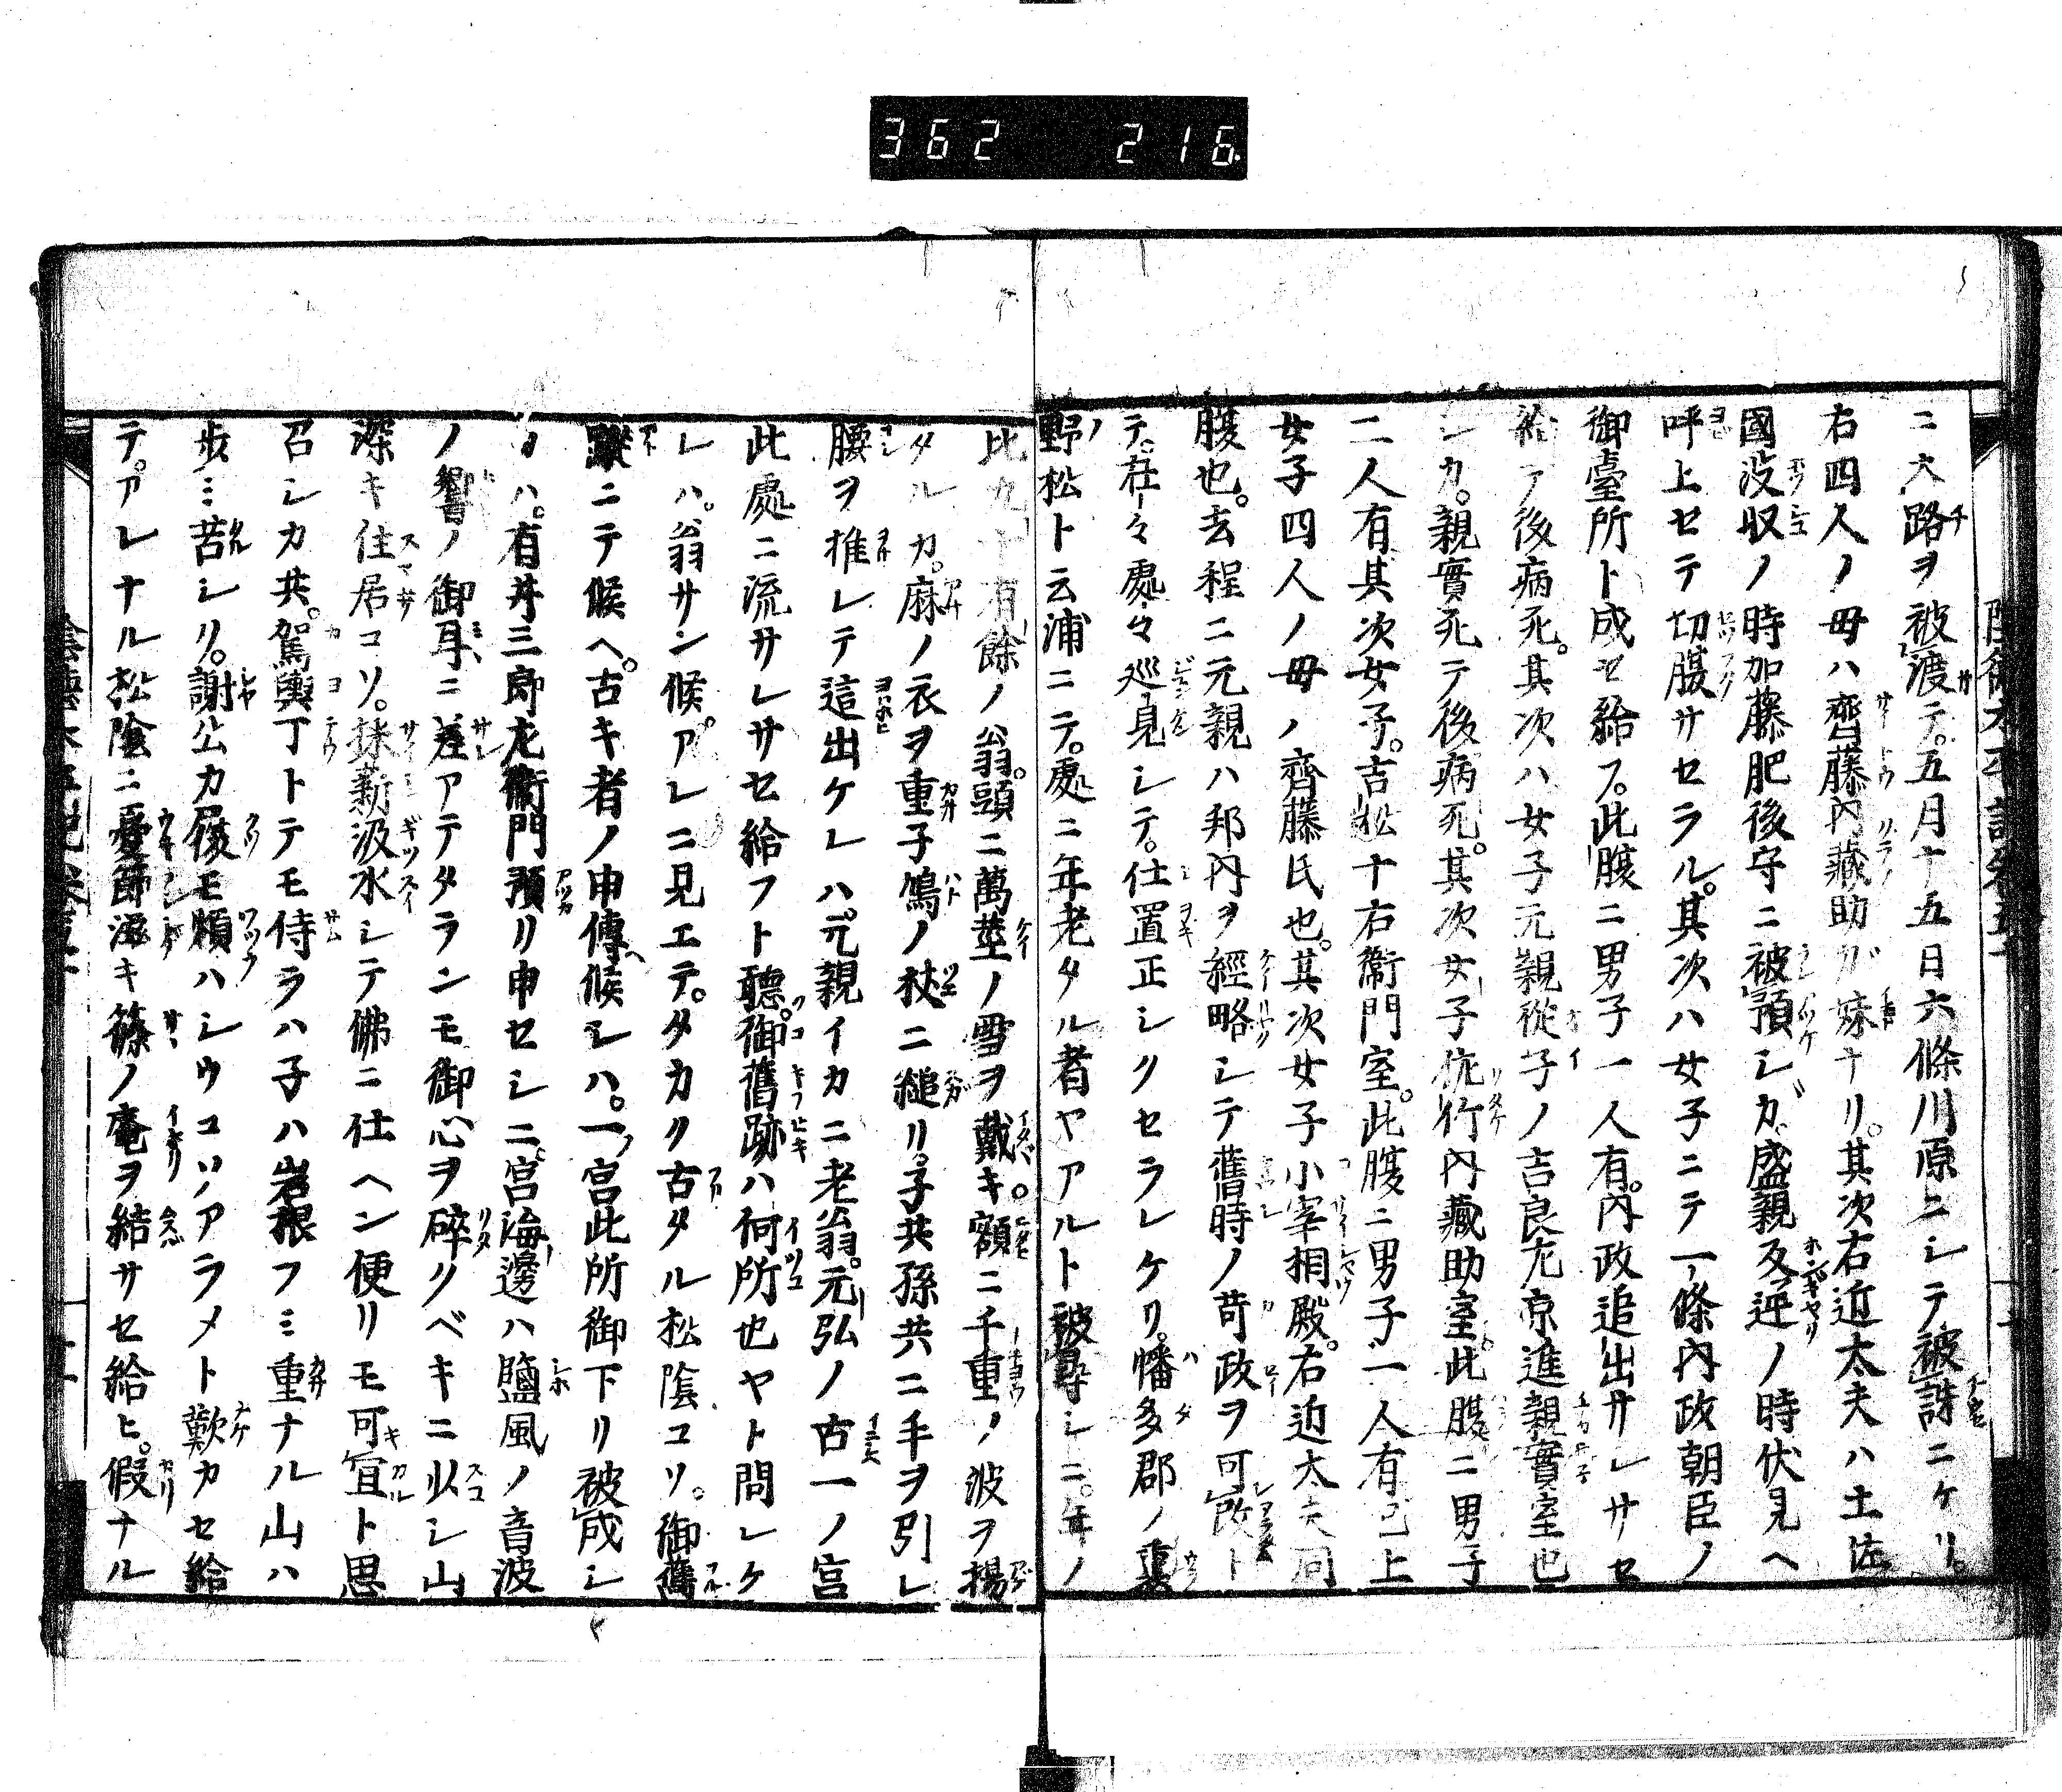 362 216
ニ大路ヲ被渡テ。五月十五日六條川原ニシテ被誅ニケリ。
右四人ノ母ハ齊藤内藏助ガ妹ナリ。其次右近太夫ハ土佐
國没収ノ時加藤肥後守ニ被預シガ、盛親反逆ノ時伏見ヘ
呼上セテ切腹サセラル。其次ハ女子ニテ一條内政朝臣ノ
御臺所ト成セ給フ。此腹ニ男子一人有。内政追出サレサセ
給テ後病死。其次ハ女子元親從子ノ吉良左京進親實室也
シカ。親實死テ後病死。其次女子佐竹内藏助室。此腹ニ男子
二人有其次女子。吉松十右衞門室。此腹ニ男子一人有已上
女子四人ノ母ノ齊藤氏也。其次女子小宰相殿。右近太夫同
腹也。去程ニ元親ハ邦内ヲ經略シテ舊時ノ苛政ヲ可改ト
テ。莊々處々巡見シテ。仕置正シクセラレケリ。幡多郡ノ裏
野松ト云浦ニテ。處ニ年老タル者ヤアルト被尋シニ。年ノ
比九十有餘ノ翁。頭ニ萬莖ノ雪ヲ戴キ。額ニ千重ノ波ヲ揚
タルカ。麻ノ衣ヲ重子鳩ノ杖ニ縋リ。子共孫共ニ手ヲ引レ
腰ヲ推レテ這出ケレハ。元親イカニ老翁。元弘ノ古一ノ宮
此處ニ流サレサセ給フト聽。御舊跡ハ何所也ヤト問レケ
レハ。翁サン候。アレニ見エテ。タカク古タル松陰コソ。御舊
蹤ニテ候ヘ。古キ者ノ申傳候シハ。一宮此所御下リ被成シ
ハ。有井三郎左衞門預リ申セシニ。宮海邊ハ鹽風ノ音波
ノ響ノ御耳ニ差アテタランモ御心ヲ碎クベキニ以シ山
深キ住居コソ。採薪汲水シテ佛ニ仕ヘン便リモ可宜ト思
召シカ共。駕輿丁トテモ侍ラハ子ハ岩根フミ重ナル山ハ
歩ミ苦シリ。謝公カ屐モ煩ハシウコソアラメト歎カセ給
テ。アレナル松陰ニ憂節滋キ篠ノ庵ヲ結サセ給ヒ。假ナル